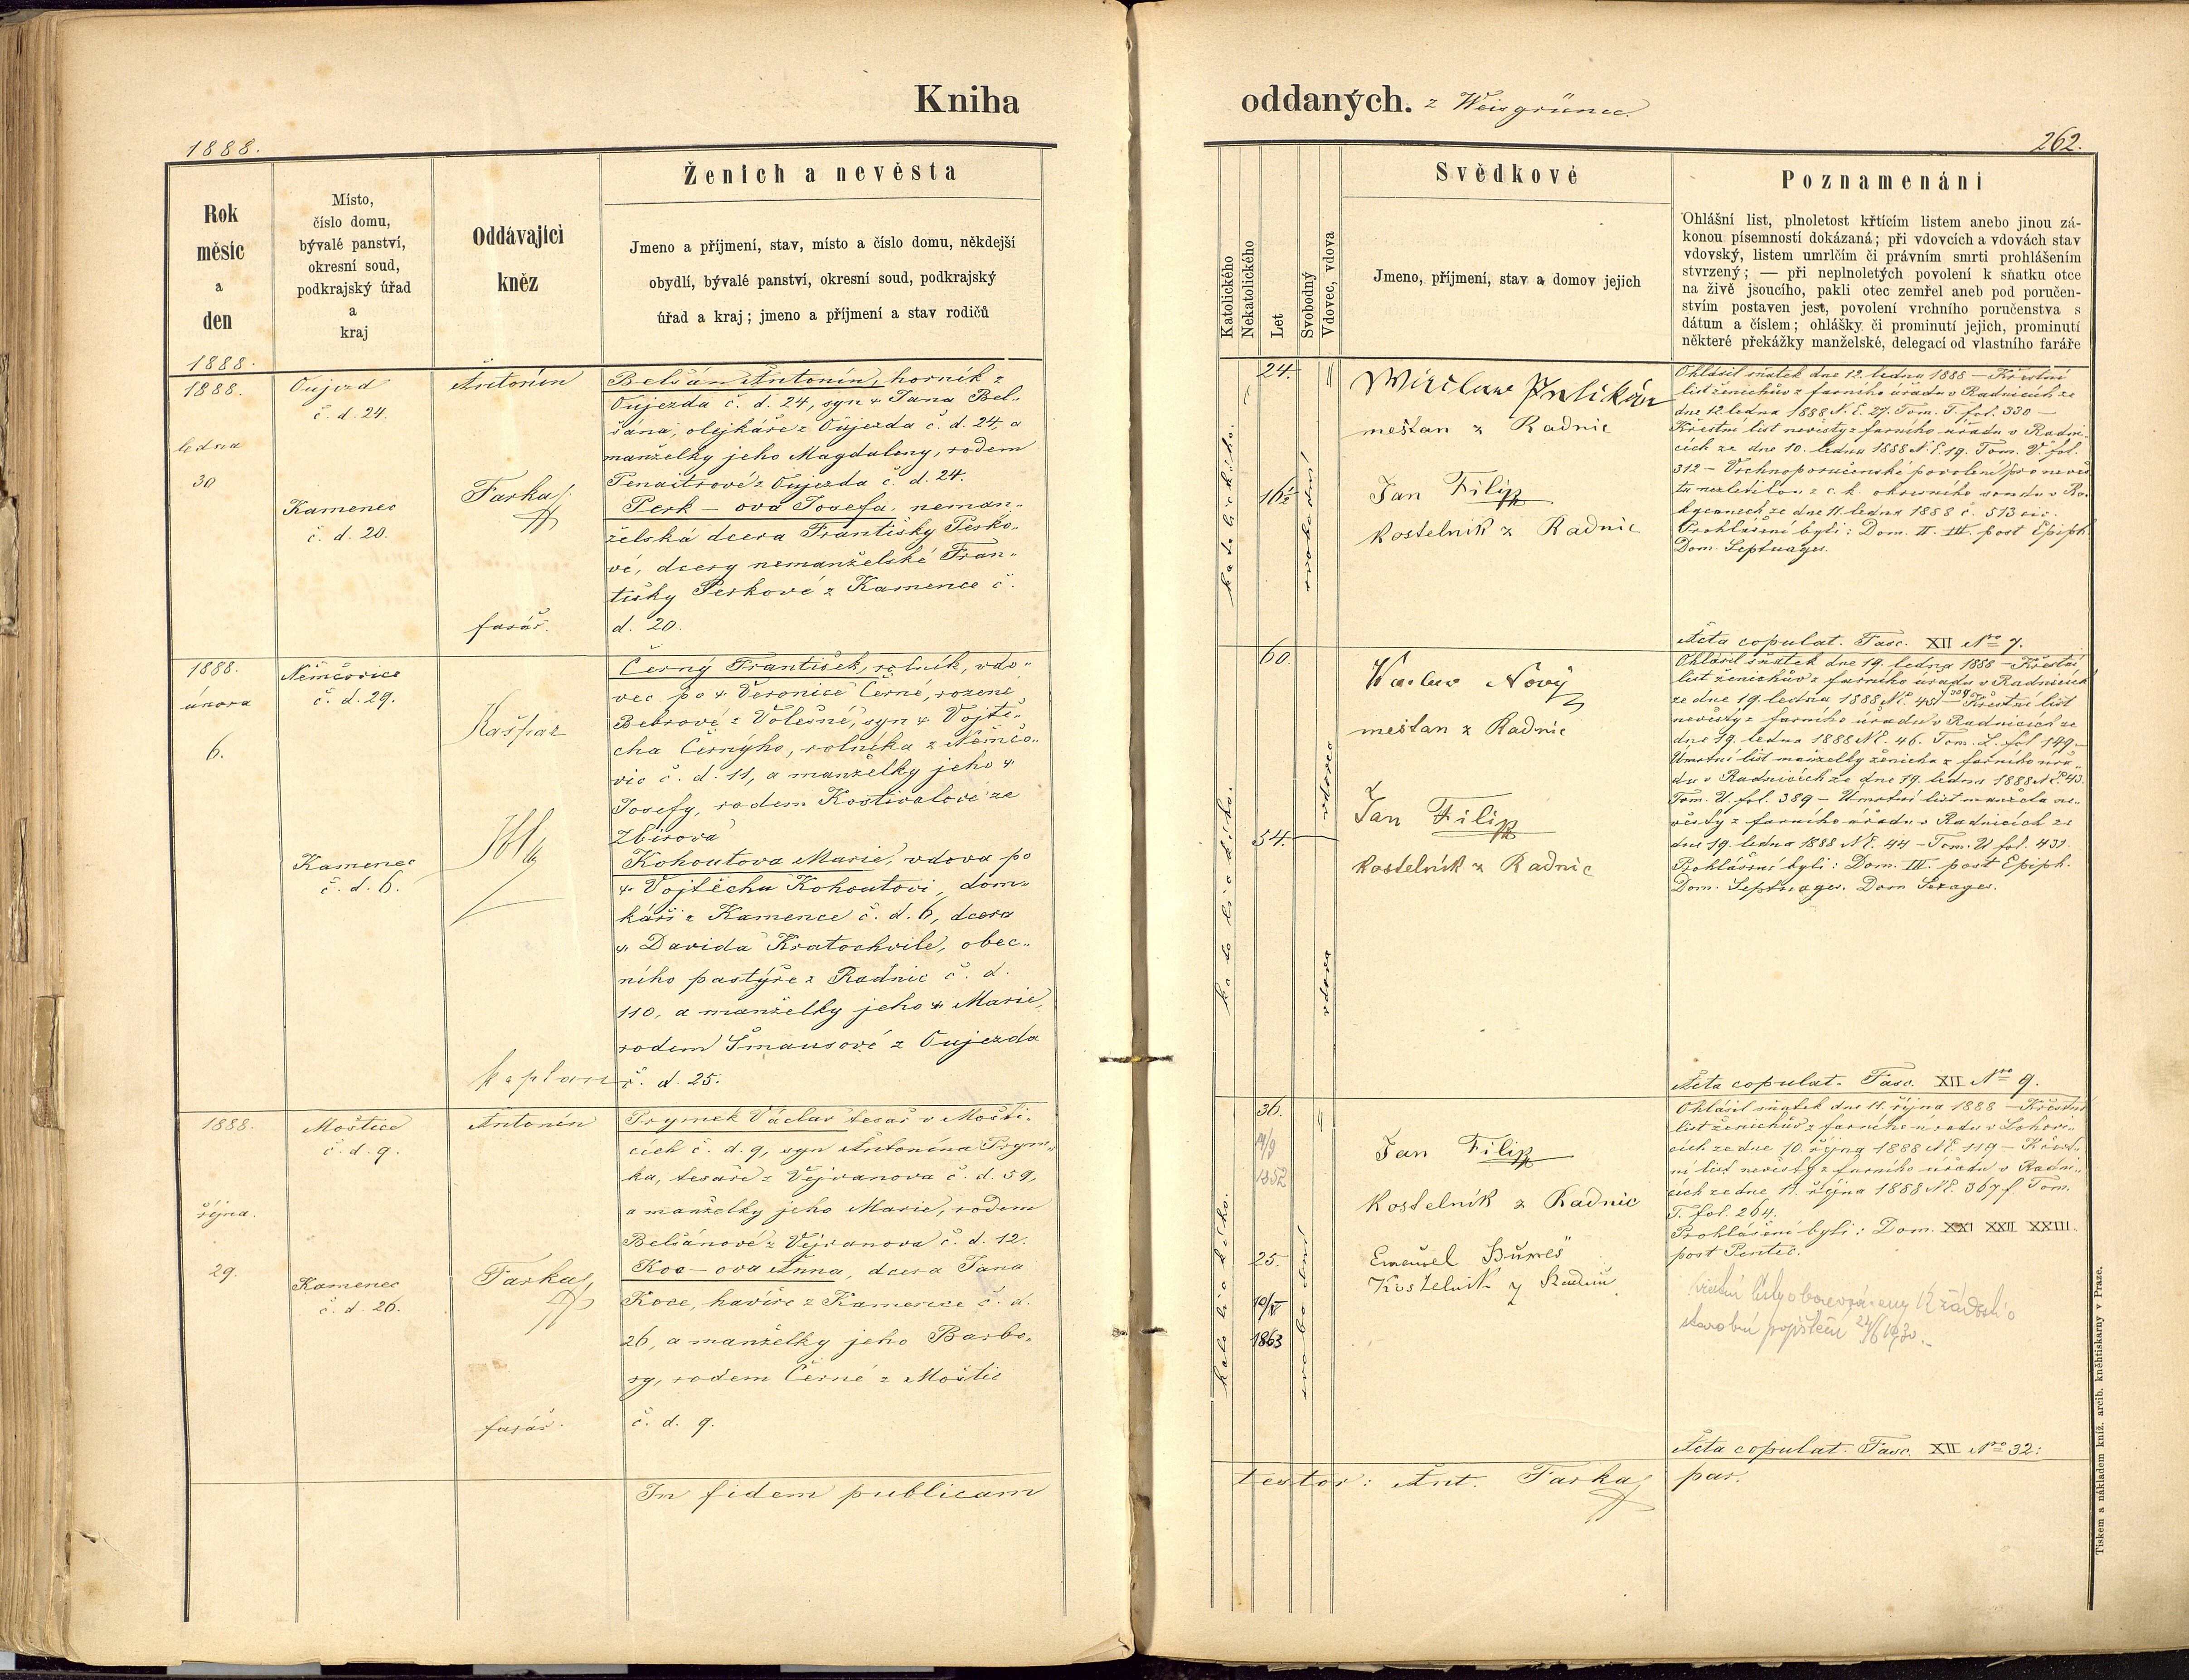 Kniha
1888.
Rok
měsíc
a
den
Místo,
číslo domu,
bývalé panství,
okresní soud,
podkrajský úřad
a
kraj
Oddávající
kněz
Ženich a nevěsta
Jmeno a příjmení, stav, místo a číslo domu, někdejší
obydlí, bývalé panství, okresní soud, podkrajský
úřad a kraj; jmeno a příjmení a stav rodičů
1888.
1888.
ledna
30
Oujezd
č. d. 24.
Kamenec
č. d. 20.
Antonín
Farkaš
farář.
Belšán Antonín, horník z
Oujezda č. d. 24, syn Jana Bel„
šána, olejkáře z Oujezda č. d. 24, a
manželky jeho Magdaleny, rodem
z Oujezda č. d. 24.
Perk – ova Josefa, neman„
želská dcera Františky Perko„
vé, dcery nemanželské Fran„
tišky Perkové z Kamence č.
d. 20.
1888.
února
6.
Němčovice
č. d. 29.
Kamenec
č. d. 6.
Kašpar
kaplan
Černý František, rolník, vdo„
vec po Veronice Černé, rozené
Bebrové z Volešné, syn Vojtě„
cha Černýho, rolníka z Němčo„
vic č. d. 11, a manželky jeho
Josefy, rodem Kostivalové ze
Zbirova
Kohoutova Marie, vdova po
Vojtěchu Kohoutovi, dom„
káři z Kamence č. d. 6, dcera
Davida Kratochvile, obec„
ního pastýře z Radnic č. d.
110, a manželky jeho Marie,
rodem Šmausové z Oujezda
č. d. 25.
1888.
října.
29.
Moštice
č. d. 9.
Kamenec
č. d. 26.
Antonín
Farkaš
farář.
Prymek Václav tesař v Mošti„
cích č. d. 9, syn Antonína Prym„
ka, tesaře z Vejvanova č. d. 59,
a manželky jeho Marie, rodem
Belšánové z Vejvanova č. d. 12.
Koc – ova Anna, dcera Jana
Koce, havíře z Kamence č. d.
26, a manželky jeho Barbo„
ry, rodem Černé z Moštic
č. d. 9.
In fidem publicam
oddaných. z Weisgrünec.
262.
Katolického
Nekatolického
Let
Svobodný
Vdovec, vdova
Svědkové
Jmeno, příjmení, stav a domov jejich
Poznamenání
Ohlášní list, plnoletost křtícím listem anebo jinou zá-
konou písemností dokázaná; při vdovcích a vdovách stav
vdovský, listem umrlčím či právním smrti prohlášením
stvrzený; — při neplnoletých povolení k sňatku otce
na živě jsoucího, pakli otec zemřel aneb pod poručen-
stvím postaven jest, povolení vrchního poručenstva s
dátum a číslem; ohlášky či prominutí jejich, prominutí
některé překážky manželské, delegací od vlastního faráře
katolického.
24.
16½
svobodní
měšťan z Radnic
Jan Filip
kostelník z Radnic
Ohlásil sňatek dne 12. ledna 1888 – Křestní
list ženichův z farního úřadu v Radnicích ze
dne 12. ledna 1888 N. E. 27. Tom. T. fol. 330 –
Křestní list nevěsty z farního úřadu v Radni„
cích ze dne 10. ledna 1888 N. E. 19. Tom. V. fol.
312 – Vrchnoporučenské povolení pro nevěs„
tu nezletilou z c. k. okresního soudu v Ro„
kycanech ze dne 11. ledna 1888 č. 513 civ.
Prohlášeni byli: Dom. II. III. post Epiph.
Dom. Septuages.
Acta copulat. Fasc. XII Nro 7.
katolického.
60.
54.
vdovec
vdova
Nový
měšťan z Radnic
Jan Filip
kostelník z Radnic
Ohlásil sňatek dne 19. ledna 1888 – Křestní
list ženichův z farního úřadu v Radnicích
ze dne 19. ledna 1888 N. E. 45. – Křestní list
nevěsty z farního úřadu v Radnicích ze
dne 19. ledna 1888 N. E. 46. Tom. L. fol. 149 –
Úmrtní list manželky ženicha z farního úřa„
du v Radnicích ze dne 19. ledna 1888 N. E. 43.
Tom. U. fol. 389 – Úmrtní list manžela ne„
věsty z farního úřadu v Radnicích ze
dne 19. ledna 1888 N. E. 44 – Tom. U fol. 431.
Prohlášeni byli: Dom. III. post Epiph.
Dom. Septuages. Dom Sexages.
Acta copulat. Fasc. XII Nro 9.
katolického.
36.
1852
25.
10/V
1863
svobodní
Jan Filip
kostelník z Radnic
Bureš
Kostelník z Radnic
Ohlásil sňatek dne 11. října 1888 – Křestní
list ženichův z farního úřadu v Lohovi„
cích ze dne 10. října 1888 N. E. 119 – Křest„
ní list nevěsty z farního úřadu v Radni„
cích ze dne 11. října 1888 N. E. 367 f. Tom.
T. fol. 264.
Prohlášeni byli: Dom. XXI XXII XXIII.
post Pentec.
starobní pojištění
Acta copulat. Fasc. XII Nro 32.
testor: Ant. Farkaš par.
Tiskem a nákladem kníž. arcib. kněhtiskarny v Praze.